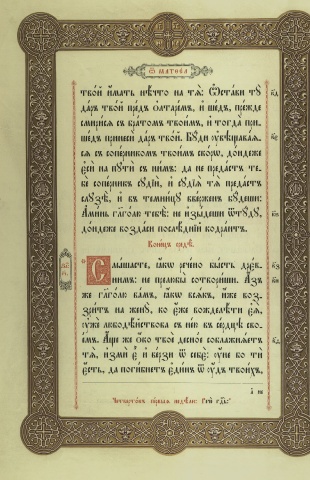 Ѿ маттеа
твой и҆́мать нѣ́что на тѧ̀. Ѡ҆ста́ви тꙋ̀
да́ръ тво́й пред̾ ѻ҆лтаре́мъ, и҆ ше́дъ, пре́жде
смири́сѧ съ бра́томъ твои́мъ, и҆ тогда̀ при-
ше́дъ принесѝ да́ръ тво́й. Бꙋ́ди ᲂу҆вѣщава́ѧ-
сѧ съ сопе́рникомъ твои́мъ ско́рѡ, до́ндеже
є҆сѝ на пꙋтѝ съ ни́мъ: да не преда́стъ те-
бѐ сопе́рникъ сꙋдїѝ, и҆ сꙋдїѧ̀ тѧ̀ преда́стъ
слꙋзѣ̀, и҆ въ темни́цꙋ вве́рженъ бꙋ́деши:
А҆ми́нь гл҃го́лю тебѣ̀: не и҆зы́деши ѿтꙋ́дꙋ,
до́ндеже возда́си послѣ́днїй кодра́нтъ.
Коне́цъ средѣ̀.
Слы́шасте, ꙗ҆́кѡ рече́но бы́сть дре́в-
нимъ: не прелюбы̀ сотвори́ши. А҆́зъ
же гл҃го́лю ва́мъ, ꙗ҆́кѡ всѧ́къ, и҆́же воз-
зри́тъ на женꙋ̀, ко є҆́же вожделѣ́ти є҆ѧ̀,
ᲂу҆жѐ любодѣ́йствова съ не́ю въ се́рдцѣ сво-
е́мъ. А҆́ще же ѻ҆́ко твоѐ десно́е соблажнѧ́етъ
тѧ̀, и҆змѝ є҆̀ и҆ ве́рзи ѿ себє̀: ᲂу҆́не бо тѝ
є҆́сть, да поги́бнетъ є҆ди́нъ ѿ ᲂу҆́дъ твои́хъ,
Четверто́къ пе́рвыѧ недѣ́ли: